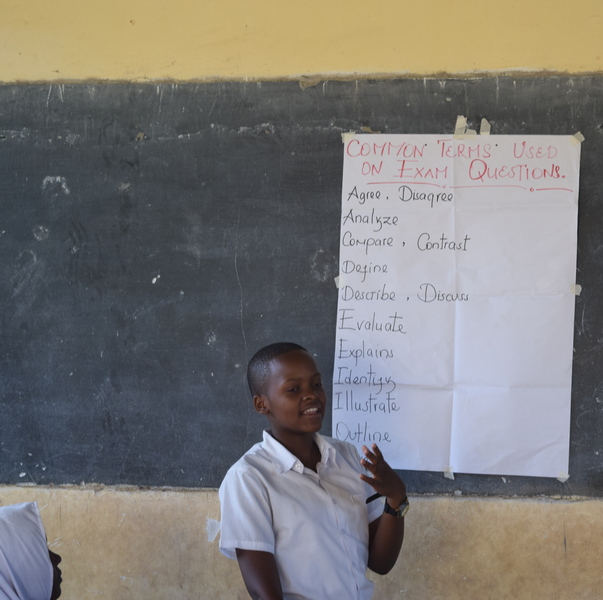 COMMON TERMS USED
ON EXAM QUESTIONS.
Agree, Disagree
Analyze
Compare, Contrast
Define
Describe, Discuss
Evaluate
Explains
Identify
Illustrate
Outline